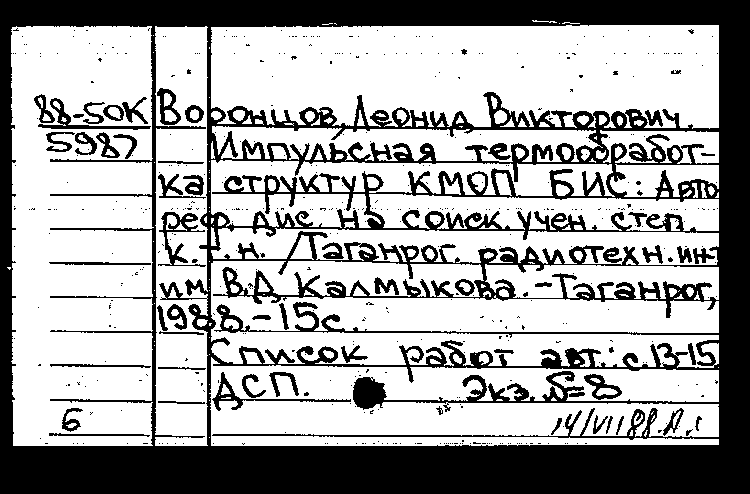 88-50К Воронцов, Леонид Викторович.
5987 Импульсная термообработ-
ка структур КМОП БИС: Авто
реф. дис. на соиск. учен. степ.
к.т.н. /Таганрог. радиотехн. инт
им В.Д Калмыкова.-Таганрог,
1988.-15с.
Список работ авт.: с.13-15
ДСП. Экз. №8
6 14/VII 88.